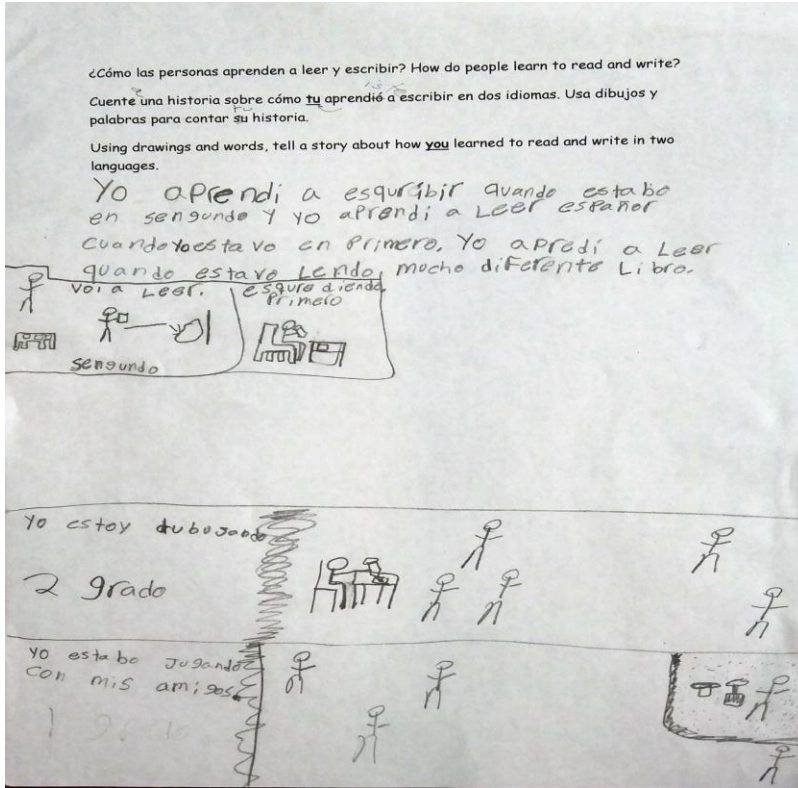 ¿Cómo las personas aprenden a leer y escribir? How do people learn to read and write?
Cuente una historia sobre cómo tu aprendió a escribir en dos idiomas. Usa dibujos y
palabras para contar su historia.
Using drawings and words, tell a story about how you learned to read and write in two
languages.
Yo aprendi a esquribir quando estabo
en sengundo y yo aprendi a Leer españor
cuando yo estavo en Primero. Yo apredi a Leer
quando estavo Lendo, mucho diferente Libro.
voi a Leer.
sengundo
esqure diendo
Primero
Yo estoy dubujando
2 grado
yo estabo jugando
con mis amigos.